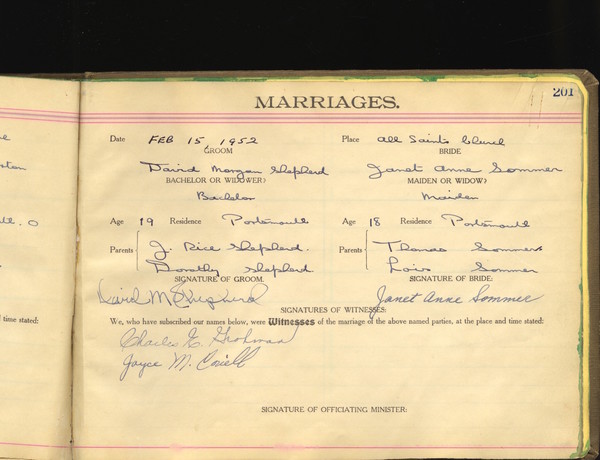 201
MARRIAGES.
Date FEB 15, 1952 Place All Saints Church
GROOM BRIDE
David Morgan Shepherd Janet Anne Sommer
BACHELOR OR WIDOWER? MAIDEN OR WIDOW?
Bachelor Maiden
Age 19 Residence Portsmouth Age 18 Residence Portsmouth
Parents J. Rice Shepherd. Parents Thomas Sommer
Dorothy Shepherd Lois Sommer
SIGNATURE OF GROOM. SIGNATURE OF BRIDE:
David M Shepherd Janet Anne Sommer
SIGNATURES OF WITNESSES:
time stated: We, who have subscribed our names below, were Witnesses of the marriage of the above named parties, at the place and time stated:
Charles E.
Joyce M.
SIGNATURE OF OFFICIATING MINISTER: